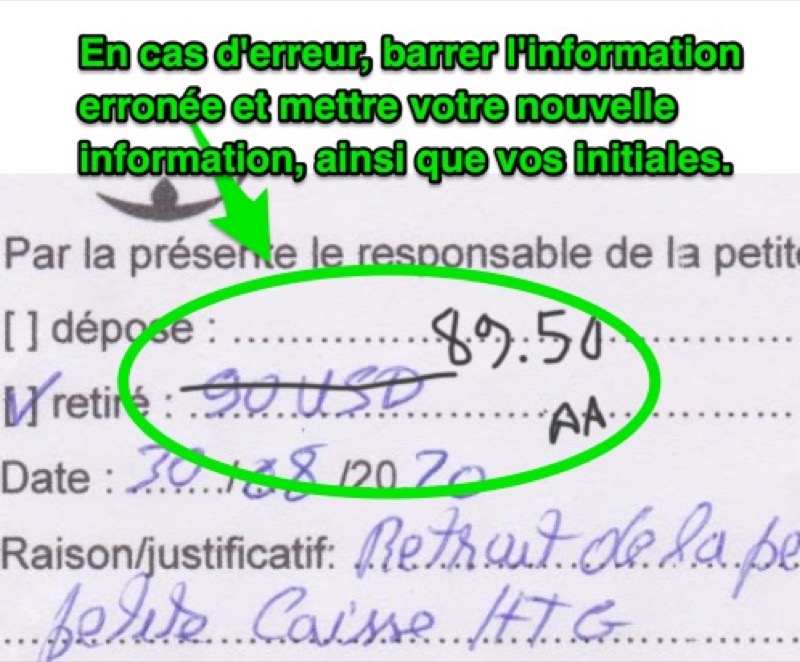 En cas d'erreur, barrer l'information
erronée et mettre votre nouvelle
information, ainsi que vos initiales.
Par la présente le responsable de la petit
[ ] dépose : 89.50
[✓] retiré : 90 USD AA
Date : 30/08/2020
Raison/justificatif: Retrait de la pe
petite Caisse HTG